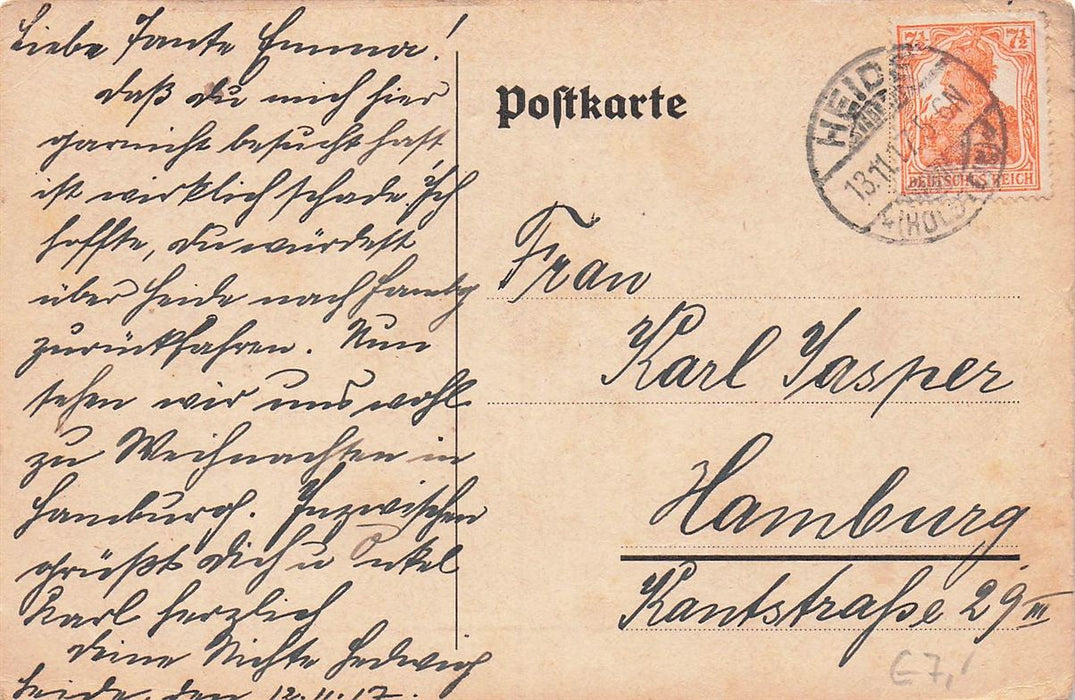 Liebe Tante Emma!
Daß Du mich hier
garnicht besucht hast
ist wirklich schade. Ich
hoffte, Du würdest
über Heide nach Hambg
zurückfahren. Nun
sehen wir uns wohl
zu Weihnachten in
Hamburg. Inzwischen
grüßt Dich u Onkel
Karl herzlich
Deine Nichte Hedwig
Heide, den 12.11.17.
Postkarte
7½ 7½
DEUTSCHES REICH
HEIDE
13.11.17. 5-6N
(HOLST
Frau
Karl Jasper
Hamburg
Kantstraße 29 III
€7,-